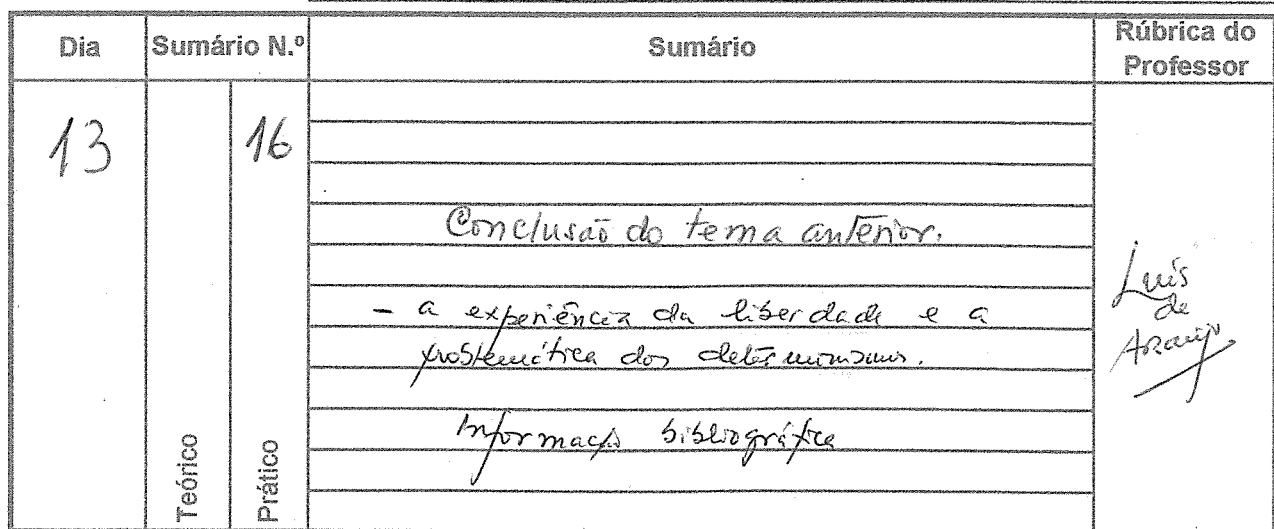 Dia
Sumário N.º
Sumário
Rúbrica do
Professor
13
16
Conclusão do tema anterior.
- a experiência da liberdade e a
problemática dos determinismos.
Informação bibliográfica
Luís
de
Araújo
Teórico
Prático